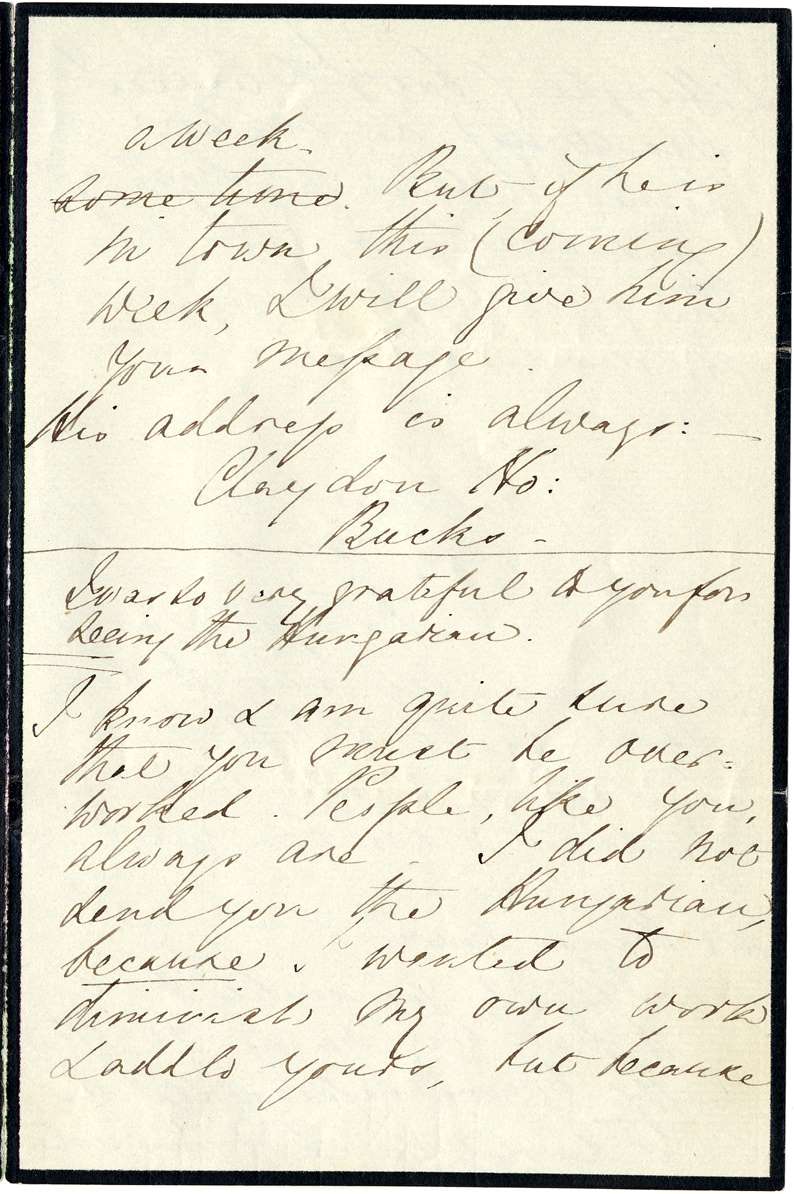 a week.
some time. But if he is
in town this (coming)
week, I will give him
your message
His address is always: —
Claydon Ho:
Bucks -
I was so very grateful to you for
seeing the Hungarian.
I know & am quite sure
that you must be over-
worked. People, like you,
always are - I did not
send you the Hungarian,
because I wanted to
diminish my own work
& add to yours, but because